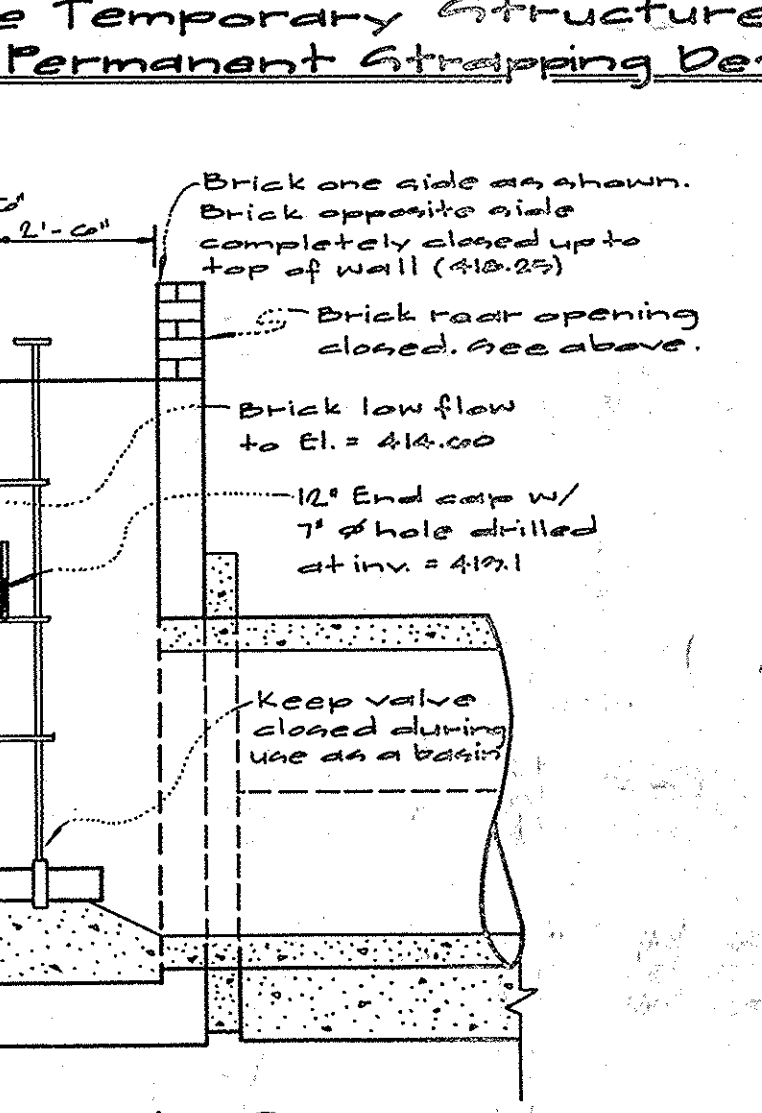 e Temporary Structure
Permanent Strapping De
6"
2'-6"
Brick one side as shown.
Brick opposite side
completely closed up to
top of wall (418.25)
Brick rear opening
closed. See above.
Brick low flow
to El. = 414.60
12" End cap w/
7" ø hole drilled
at inv. =
Keep valve
closed during
use as a basin